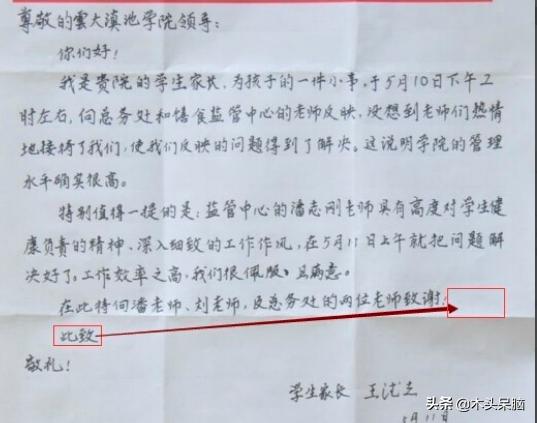 尊敬的雲大滇池学院领导：
你们好！
我是贵院的学生家长，为孩子的一件小事，于5月10日下午2
时左右，向总务处和膳食监管中心的老师反映，没想到老师们热情
地接待了我们，使我们反映的问题得到了解决。这说明学院的管理
水平确实很高。
特别值得一提的是：监管中心的潘志刚老师具有高度对学生健
康负责的精神、深入细致的工作作风，在5月11日上午就把问题解
决好了。工作效率之高，我们很佩服、且满意。
在此特向潘老师、刘老师，及总务处的两位老师致谢！
此致
敬礼！
学生家长 王
5月11日
头条@木头呆脑